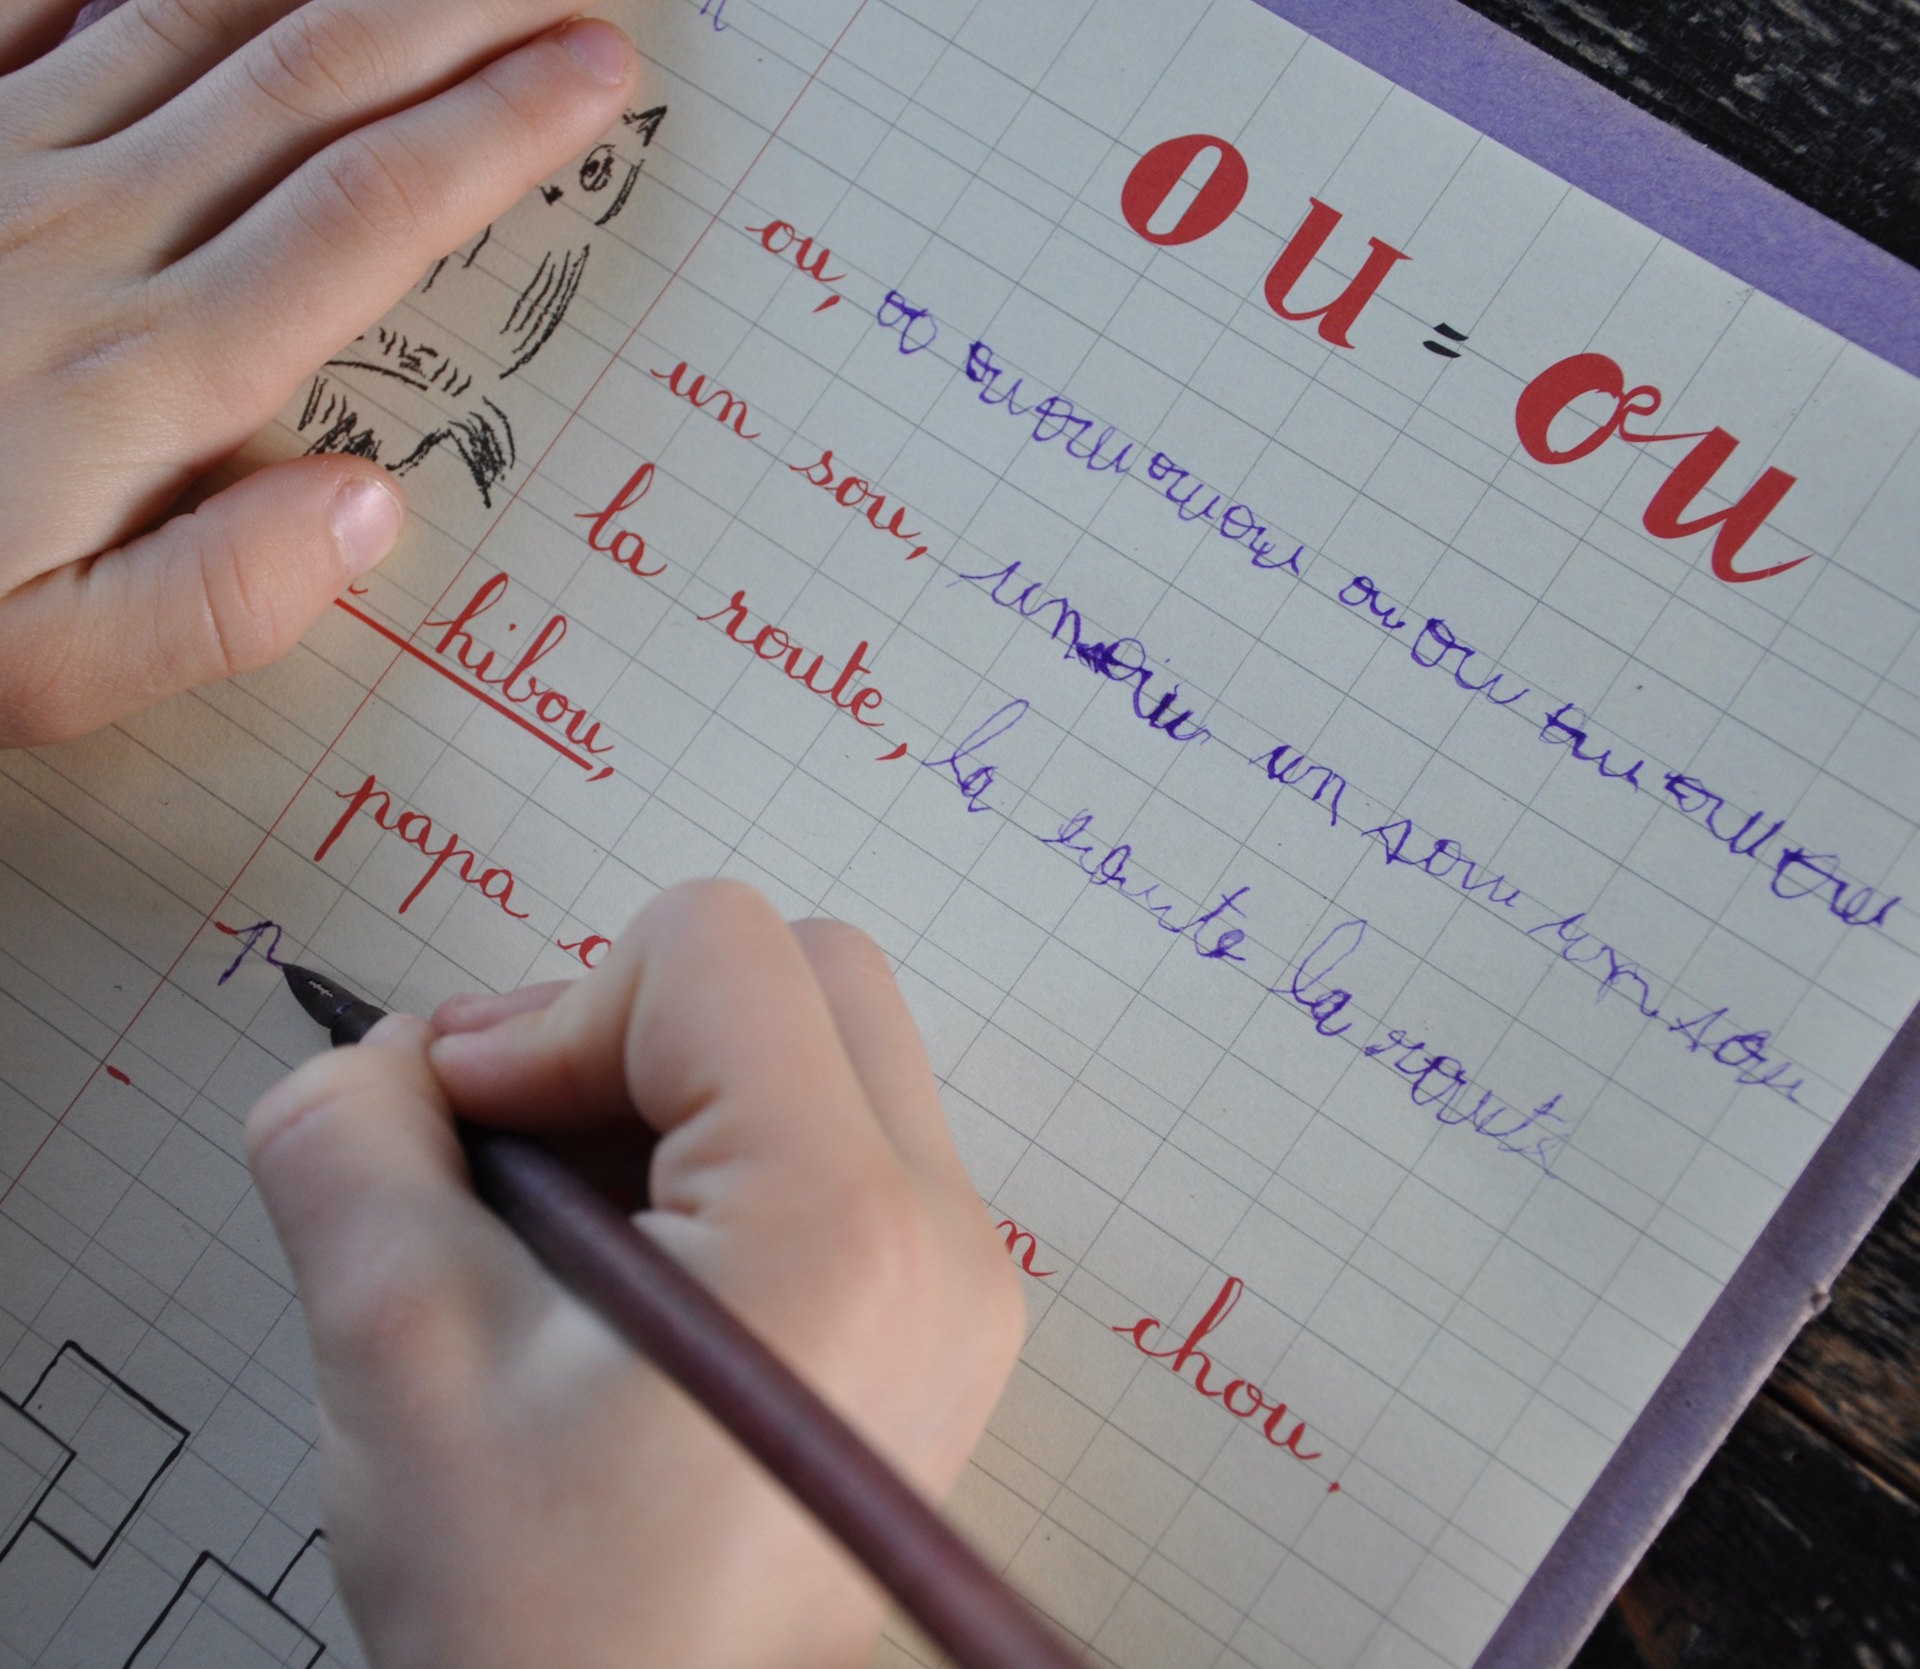 ou = ou
ou, ou ou ou ou ou ou ou ou ou ou ou
un sou, un sou un sou un sou
la route, la route la route
hibou,
papa
chou.